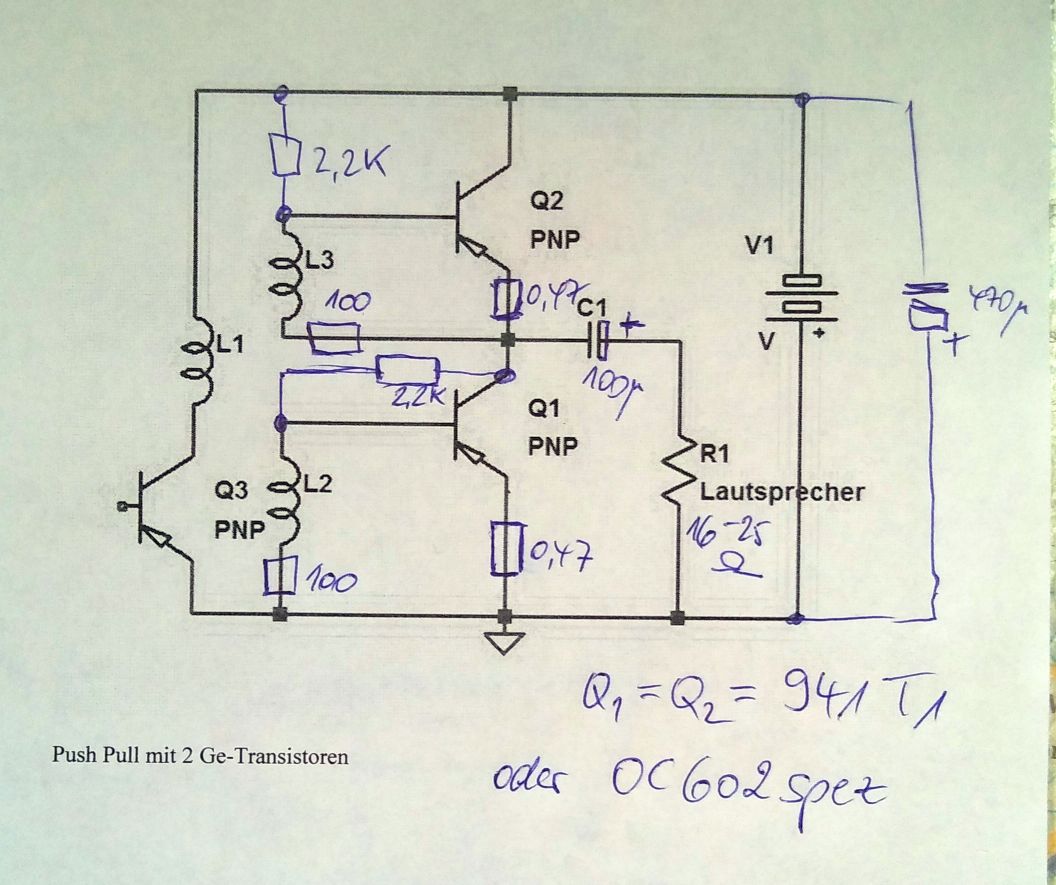 2,2K
Q2
PNP
L3
100
0,47
C1
+
100µ
V1
V
+
470µ
+
L1
2,2K
Q1
PNP
Q3
PNP
L2
R1
Lautsprecher
16-25
Ω
0,47
100
Q1 = Q2 = 941 T1
Push Pull mit 2 Ge-Transistoren
oder OC602 spez